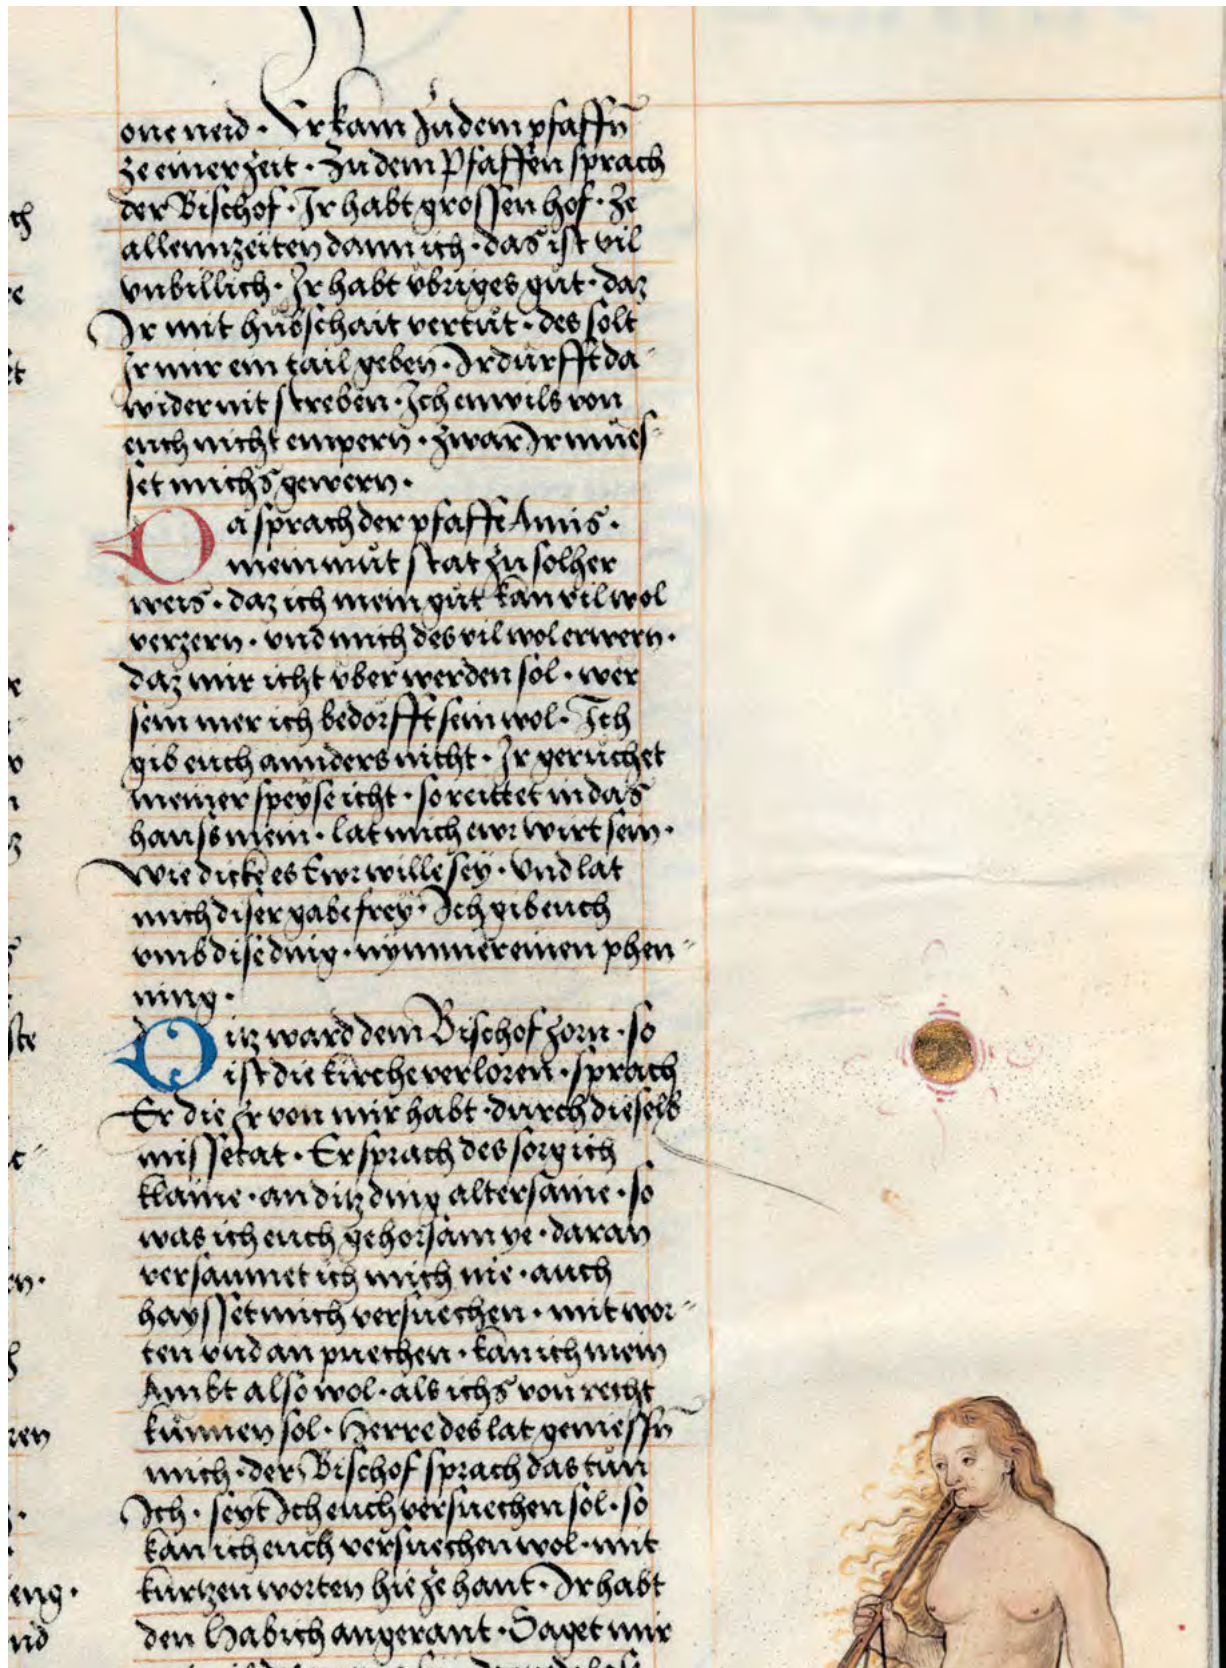 one neid · Er kam zu dem pfaffn̄
ze einer zeit · Zu dem Pfaffen sprach
der Bischof · Ir habt grossen hof · ze
allennzeiten dann ich · das ist vil
vnbillich · Ir habt vbriges gůt · daz
Ir mit hubschait vertůt · des solt
Ir mir ein tail geben · Ir durfft da-
wider nit streben · Ich enwils von
euch nicht empern · zwar Ir mües-
set michs gewern ·
Da sprach der pfaffe Amis ·
mein můt stat zu solher
weis · daz ich mein gůt kan vil wol
verzern · vnd mich des vil wol erwern ·
daz mir icht vber werden sol · wer
sein mer ich bedorfft sein wol · Ich
gib euch annders nicht · Ir gerůchet
meiner speyse icht · so reittet in das
hauss mein · lat mich ewr wirt sein ·
wie dicke es Ewr wille sey · vnd lat
mich diser gabe frey · Ich gib euch
vmb dise ding · nymmer einen phen-
ning ·
Ditz ward dem Bischof zorn · so
ist die kirche verloren · sprach
Er die Ir von mir habt · durch dieselb
missetat · Er sprach des sorg ich
klaine · an ditz ding altersaine · so
was ich euch gehorsam ye · daran
versaumet ich mich nie · auch
haysset mich versuechen · mit wor-
ten vnd an puechen · kan ich mein
Ambt also wol · als ichs von recht
künnen sol · Herre des lat geniessn̄
mich · der Bischof sprach das tůn
Ich · seyt Ich euch versuechen sol · so
kan ich euch versuechen wol · mit
kurtzen worten hie ze hant · Ir habt
den Habich angerant · Saget mir